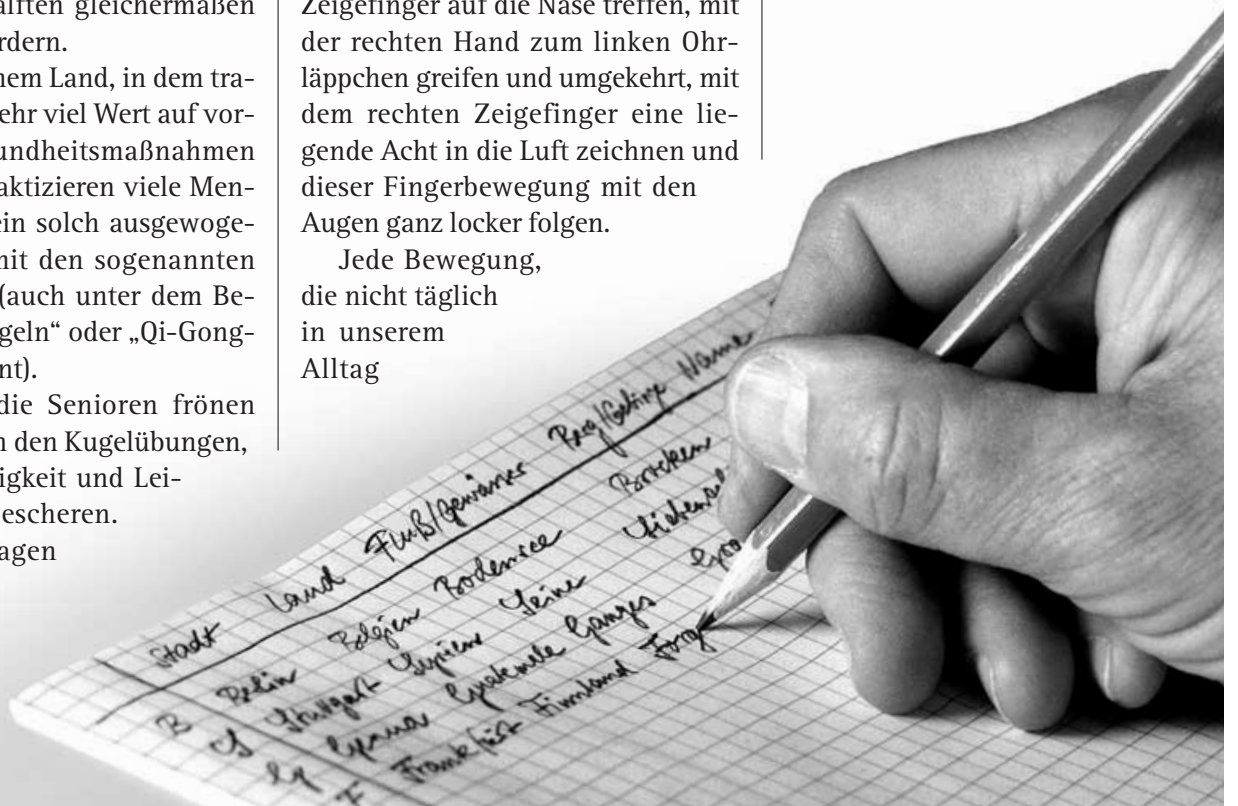 älften gleichermaßen
rdern.
nem Land, in dem tra-
ehr viel Wert auf vor-
undheitsmaßnahmen
aktizieren viele Men-
ein solch ausgewoge-
mit den sogenannten
(auch unter dem Be-
geln“ oder „Qi-Gong-
nt).
die Senioren frönen
n den Kugelübungen,
igkeit und Lei-
escheren.
agen
Zeigefinger auf die Nase treffen, mit
der rechten Hand zum linken Ohr-
läppchen greifen und umgekehrt, mit
dem rechten Zeigefinger eine lie-
gende Acht in die Luft zeichnen und
dieser Fingerbewegung mit den
Augen ganz locker folgen.
Jede Bewegung,
die nicht täglich
in unserem
Alltag
Stadt Land Fluß/Gewässer Berg/Gebirge Name
B Berlin Belgien Bodensee Brocken
S Stuttgart Syrien Seine
G Ganges Gro
F Frankfurt Finnland